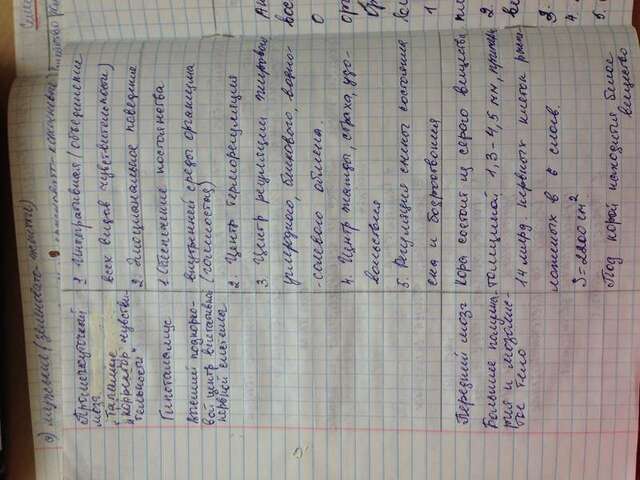 в) мужские (зеленовато-желтые)
Промежуточный
мозг.
"Таламус
"корректор чувстви-
тельности"
1. Интегративная (объединение
всех видов чувствительности)
2. Эмоцианальное поведение
Гипоталамус
Высший подкорко-
вой центр вегетативной
нервной системы
1. Обеспечение постоянства
внутренней среды организма
(гомеостаз)
2. Центр терморегуляция
3. Центр регуляции жирового
углеродного, белкового, водно-
-солевого обмена.
4. Центр жажды, страха, удо-
вольствия
5. Регуляция смены состояния
сна и бодрствования
Передний мозг
Большие полуша-
рия и мозолис-
тое тело
Кора состоит из серого вещества
толщиной 1,3-4,5 мм, примерно
14 млрд. нервных клеток распо-
ложеных в 6 слоев.
S=2200 см²
Под корой находится белое
вещество